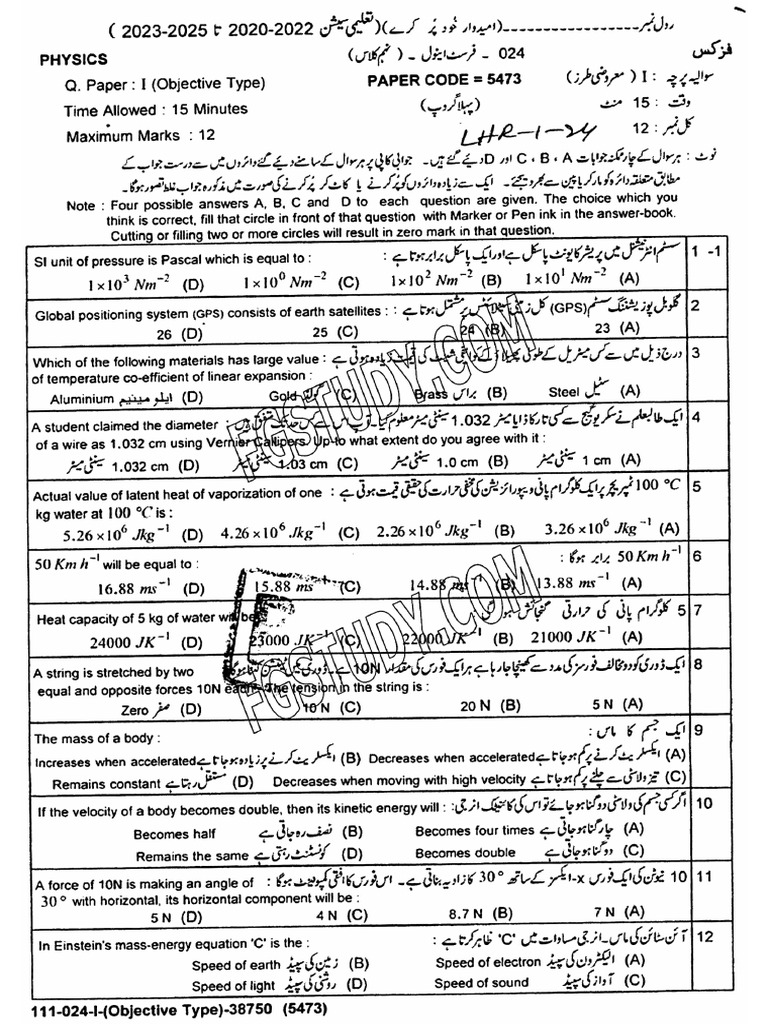 رول نمبر ------------------ (امیدوار خود پُر کرے) (تعلیمی سیشن 2020-2022 تا 2023-2025 )
PHYSICS 024 - فرسٹ اینول - (نہم کلاس) فزکس
Q. Paper : I (Objective Type) PAPER CODE = 5473 سوالیہ پرچہ : I ( معروضی طرز )
Time Allowed : 15 Minutes (پہلا گروپ) وقت : 15 منٹ
Maximum Marks : 12 LHR-1-24 کل نمبر : 12
نوٹ : ہر سوال کے چار ممکنہ جوابات A ، B ، C اور D دیئے گئے ہیں۔ جوابی کاپی پر ہر سوال کے سامنے دیئے گئے دائروں میں سے درست جواب کے
مطابق متعلقہ دائرہ کو مارکر یا پین سے بھر دیجئے۔ ایک سے زیادہ دائروں کو پُر کرنے یا کاٹ کر پُر کرنے کی صورت میں مذکورہ جواب غلط تصور ہوگا۔
Note : Four possible answers A, B, C and D to each question are given. The choice which you
think is correct, fill that circle in front of that question with Marker or Pen ink in the answer-book.
Cutting or filling two or more circles will result in zero mark in that question.
SI unit of pressure is Pascal which is equal to : سسٹم انٹرنیشنل میں پریشر کا یونٹ پاسکل ہے اور ایک پاسکل برابر ہوتا ہے : 1 -1
1×10³ Nm⁻² (D) 1×10⁰ Nm⁻² (C) 1×10² Nm⁻² (B) 1×10¹ Nm⁻² (A)
Global positioning system (GPS) consists of earth satellites : گلوبل پوزیشننگ سسٹم (GPS) کل زمینی سیٹلائٹس پر مشتمل ہوتا ہے : 2
26 (D) 25 (C) 24 (B) 23 (A)
Which of the following materials has large value : درج ذیل میں سے کس میٹریل کے طولی پھیلاؤ کے کوایفی شینٹ کی قیمت زیادہ ہوتی ہے : 3
of temperature co-efficient of linear expansion :
Aluminium ایلومینیم (D) Gold گولڈ (C) Brass براس (B) Steel سٹیل (A)
A student claimed the diameter ایک طالبعلم نے سکریو گیج سے کسی تار کا ڈایا میٹر 1.032 سینٹی میٹر معلوم کیا۔ آپ اس سے کس حد تک متفق ہیں : 4
of a wire as 1.032 cm using Vernier Callipers. Up to what extent do you agree with it :
1.032 cm سینٹی میٹر (D) 1.03 cm سینٹی میٹر (C) 1.0 cm سینٹی میٹر (B) 1 cm سینٹی میٹر (A)
Actual value of latent heat of vaporization of one 100 °C ٹمپریچر پر ایک کلوگرام پانی کی ویپورائزیشن کی مخفی حرارت کی حقیقی قیمت ہوتی ہے : 5
kg water at 100 °C is :
5.26×10⁶ Jkg⁻¹ (D) 4.26×10⁶ Jkg⁻¹ (C) 2.26×10⁶ Jkg⁻¹ (B) 3.26×10⁶ Jkg⁻¹ (A)
50 Km h⁻¹ will be equal to : 50 Km h⁻¹ برابر ہوگا : 6
16.88 ms⁻¹ (D) 15.88 ms⁻¹ (C) 14.88 ms⁻¹ (B) 13.88 ms⁻¹ (A)
Heat capacity of 5 kg of water will be 5 کلوگرام پانی کی حرارتی گنجائش ہوتی 7
24000 JK⁻¹ (D) 23000 JK⁻¹ (C) 22000 JK⁻¹ (B) 21000 JK⁻¹ (A)
A string is stretched by two ایک ڈوری کو دو مخالف فورسز کی مدد سے کھینچا جا رہا ہے ہر ایک فورس کی مقدار 10N ہے۔ ڈوری میں ٹینشن ہوگا 8
equal and opposite forces 10N each. The tension in the string is :
Zero صفر (D) 10 N (C) 20 N (B) 5 N (A)
The mass of a body : ایک جسم کا ماس : 9
Increases when accelerated ایکسلریٹ کرنے پر زیادہ ہو جاتا ہے (B) Decreases when accelerated ایکسلریٹ کرنے پر کم ہو جاتا ہے (A)
Remains constant مستقل رہتا ہے (D) Decreases when moving with high velocity تیز ولاسٹی سے چلنے پر کم ہو جاتا ہے (C)
If the velocity of a body becomes double, then its kinetic energy will : اگر کسی جسم کی ولاسٹی دوگنا ہو جائے تو اس کی کائنیٹک انرجی : 10
Becomes half نصف رہ جاتی ہے (B) Becomes four times چار گنا ہو جاتی ہے (A)
Remains the same کونسٹنٹ رہتی ہے (D) Becomes double دو گنا ہو جاتی ہے (C)
A force of 10N is making an angle of 10 نیوٹن کی ایک فورس x-ایکسز کے ساتھ 30° کا زاویہ بناتی ہے۔ اس فورس کا افقی کمپونینٹ ہوگا : 11
30° with horizontal, its horizontal component will be :
5 N (D) 4 N (C) 8.7 N (B) 7 N (A)
In Einstein's mass-energy equation 'C' is the : آئن سٹائن کی ماس۔ انرجی مساوات میں 'C' ظاہر کرتا ہے : 12
Speed of earth زمین کی سپیڈ (B) Speed of electron الیکٹرون کی سپیڈ (A)
Speed of light روشنی کی سپیڈ (D) Speed of sound آواز کی سپیڈ (C)
111-024-I-(Objective Type)-38750 (5473)
FGSTUDY.COM
FGSTUDY.COM